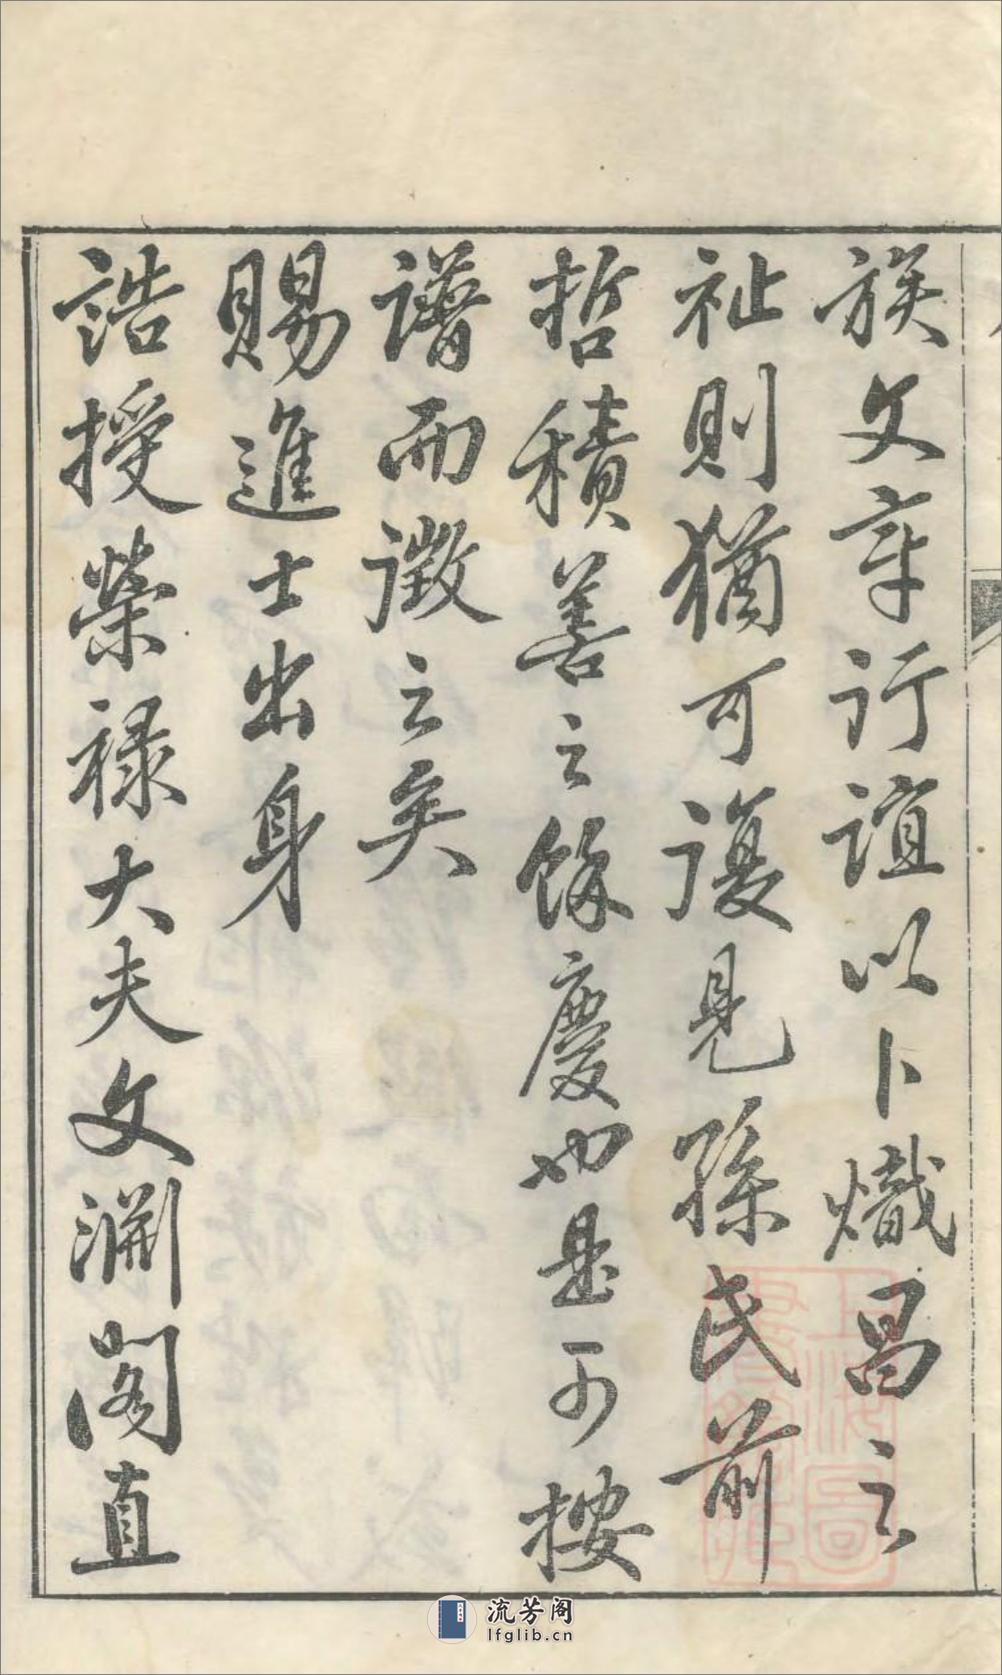 族文章行誼以卜熾昌之
祉則猶可復見孫氏前
哲積善之餘慶也是可按
譜而徵之矣
賜進士出身
誥授榮祿大夫文淵閣直
流芳阁
lfglib.cn